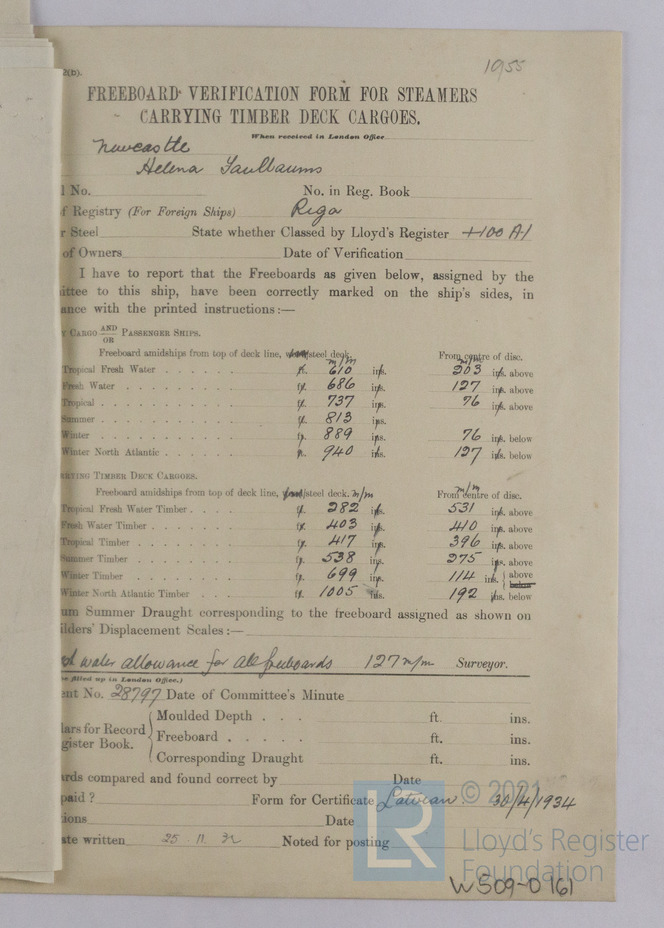 1955
2(b).
FREEBOARD VERIFICATION FORM FOR STEAMERS
CARRYING TIMBER DECK CARGOES.
When received in London Office
Newcastle
Helena Faulbaums
l No. No. in Reg. Book
f Registry (For Foreign Ships) Riga
r Steel State whether Classed by Lloyd's Register +100 A1
of Owners Date of Verification
I have to report that the Freeboards as given below, assigned by the
ittee to this ship, have been correctly marked on the ship's sides, in
ance with the printed instructions:—
CARGO AND OR PASSENGER SHIPS.
Freeboard amidships from top of deck line, wood/steel deck. From centre of disc.
m/m m/m
Tropical Fresh Water ft. 610 ins. 203 ins. above
Fresh Water ft. 686 ins. 127 ins. above
Tropical ft. 737 ins. 76 ins. above
Summer ft. 813 ins.
Winter ft. 889 ins. 76 ins. below
Winter North Atlantic ft. 940 ins. 127 ins. below
RRYING TIMBER DECK CARGOES.
Freeboard amidships from top of deck line, wood/steel deck. m/m From centre of disc. m/m
Tropical Fresh Water Timber ft. 282 ins. 531 ins. above
Fresh Water Timber ft. 403 ins. 410 ins. above
Tropical Timber ft. 417 ins. 396 ins. above
Summer Timber ft. 538 ins. 275 ins. above
Winter Timber ft. 699 ins. 114 ins. { above below
Winter North Atlantic Timber ft. 1005 ins. 192 ins. below
um Summer Draught corresponding to the freeboard assigned as shown on
ilders' Displacement Scales:—
water allowance for all freeboards 127 m/m Surveyor.
be filled up in London Office.)
ent No. 28797 Date of Committee's Minute
lars for Record
gister Book.
Moulded Depth . . . ft. ins.
Freeboard . . . . . ft. ins.
Corresponding Draught ft. ins.
ards compared and found correct by Date
paid ? Form for Certificate Latvian. 30/4/1934
tions Date
ate written 25.11.32 Noted for posting
LR
© 2021
Lloyd's Register
Foundation
W509-0161